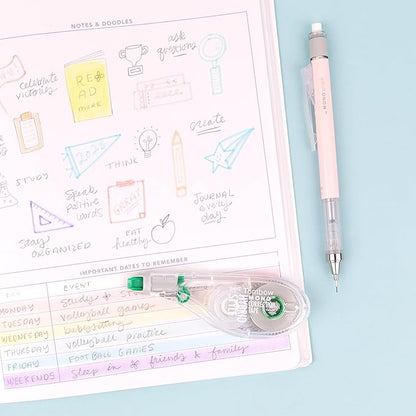 NOTES & DOODLES
celebrate victories
READ MORE
ask questions
create
2025
THINK
STUDY
Speak positive words
GREAT!
JOURNAL every day
Stay ORGANIZED
EAT healthy
IMPORTANT DATES TO REMEMBER
DAY EVENT
MONDAY Study
TUESDAY volleyball games
WEDNESDAY babysitting
THURSDAY volleyball practice
FRIDAY FOOTBALL GAMES
WEEKENDS Sleep in friends & family
Tombow
MONO
CORRECTION
MONO